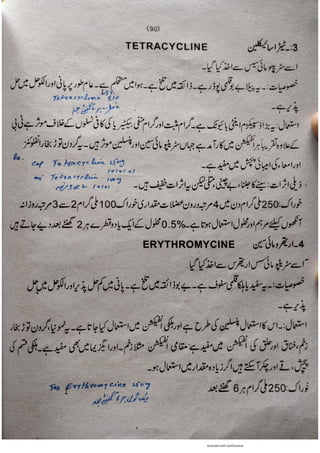 (90)
3۔ ٹیٹراسائیکلین TETRACYCLINE
اسے سٹرپٹومائی سیس سے اخذ کیا گیا۔
خصوصیات: یہ پیلا بے قلمی پوڈر ہے۔ ذائقہ میں تلخ ہے۔ ہوا میں مستحکم ہے۔ عام طور پر پانی اور الکوحل میں حل
Tetracycline
پذیر ہے۔
استعمال: یہ براڈ سپیکٹرم اینٹی بائیوٹک ہے۔ گرام مثبت اور گرام منفی بیکٹیریا کی کافی نسلوں کے خلاف موثر ہے ٹی بی
کے علاوہ تقریباً ہر انفیکشن میں کارآمد ہے جہاں سٹرپٹومائی سین اور پنسلین موثر ہیں۔ یہ گردن توڑ بخار انفلوئنزا
Cap Tetracyclin 250mg
اور امعاء کی امیبائی پیچش میں مفید ہے۔
Tetracyclin
ذیلی اثرات: سینے کا جلنا، بے چینی، متلی لیکن یہ اثرات خفیف ہیں۔
خوراک: 250 ملی گرام دن میں 4 مرتبہ درون عضلات مقداری خوراک 100 ملی گرام 2 سے 3 مرتبہ روزانہ
آنکھوں کیلئے مرہم اور محلول استعمال ہوتا ہے۔ 0.5% محلول کے ایک یا دو قطرے ہر 2 گھنٹے بعد دیے جاتے ہیں
4۔ اریتھرومائی سین ERYTHROMYCINE
اسے سٹرپٹومائی سس اریتھرس سے اخذ کیا گیا
خصوصیات: یہ سفید یا ہلکا قلمی سفوف ہے۔ بے بو ذائقہ میں تلخ ہے۔ پانی میں کم حل پذیر اور الکوحل میں حل
پذیر ہے۔
استعمال: اس کا استعمال پنسلین کی طرح ہے اور ہلکی انفیکشن میں استعمال کیا جاتا ہے۔ یہ نمونیا، گردن توڑ بخار
زخم، خناق اور حلق کی انفیکشن میں مفید ہے مقامی انفیکشن مثلاً زخم۔ اور ایگزیما میں بھی مفید ہے۔ ہلکی قسم کی
پیچش، قے اور چکر آ سکتے ہیں اگر زیادہ مقدار میں استعمال ہو۔
Tab Erythromycine 250mg
خوراک: 250 ملی گرام ہر 6 گھنٹے بعد
Scanned with CamScanner